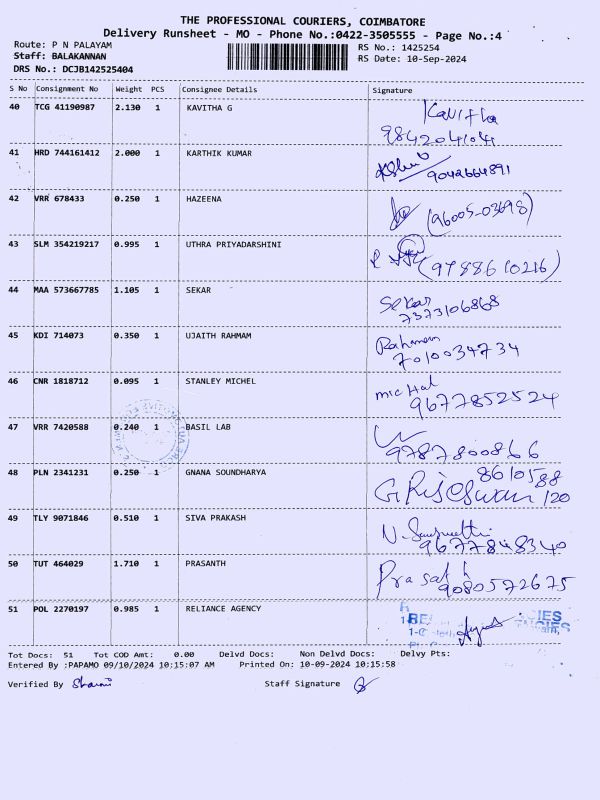 THE PROFESSIONAL COURIERS, COIMBATORE
Delivery Runsheet - MO - Phone No.:0422-3505555 - Page No.:4
Route: P N PALAYAM
RS No.: 1425254
Staff: BALAKANNAN
RS Date: 10-Sep-2024
DRS No.: DCJB142525404
S No Consignment No Weight PCS Consignee Details Signature
40 TCG 41190987 2.130 1 KAVITHA G Kavitha
9842041041
41 HRD 744161412 2.000 1 KARTHIK KUMAR
9042664891
42 VRR 678433 0.250 1 HAZEENA (96005-03698)
43 SLM 354219217 0.995 1 UTHRA PRIYADARSHINI
(9788610216)
44 MAA 573667785 1.105 1 SEKAR Sekar
7373106868
45 KDI 714073 0.350 1 UJAITH RAHMAM Rahmam
7010034734
46 CNR 1818712 0.095 1 STANLEY MICHEL micHal
9677852524
47 VRR 7420588 0.240 1 BASIL LAB
9787800866
48 PLN 2341231 0.250 1 GNANA SOUNDHARYA 8610588
120
49 TLY 9071846 0.510 1 SIVA PRAKASH
9677848340
50 TUT 464029 1.710 1 PRASANTH Prasath
9080572675
51 POL 2270197 0.985 1 RELIANCE AGENCY
Tot Docs: 51 Tot COD Amt: 0.00 Delvd Docs: Non Delvd Docs: Delvy Pts:
Entered By :PAPAMO 09/10/2024 10:15:07 AM Printed On: 10-09-2024 10:15:58
Verified By
Staff Signature